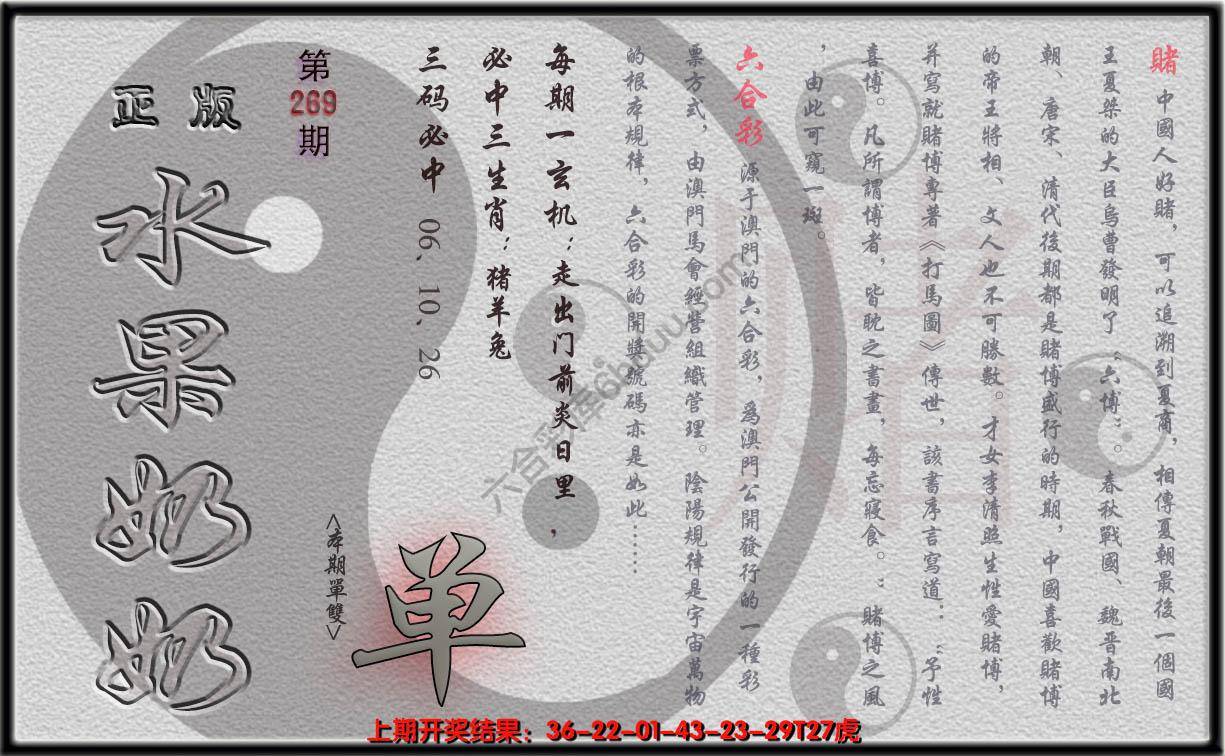 賭 中國人好賭，可以追溯到夏商，相傳夏朝最後一個國
王夏桀的大臣烏曹發明了“六博”。春秋戰國、魏晉南北
朝、唐宋、清代後期都是賭博盛行的時期，中國喜歡賭博
的帝王將相、文人也不可勝數。才女李清照生性愛賭博，
并寫就賭博專著《打馬圖》傳世，該書序言寫道：“予性
喜博。凡所謂博者，皆耽之書畫，每忘寢食。”賭博之風
，由此可窺一斑。
六合彩 源于澳門的六合彩，為澳門公開發行的一種彩
票方式，由澳門馬會經營組織管理。陰陽規律是宇宙萬物
的根本規律，六合彩的開獎號碼亦是如此……
每期一玄机：走出门前炎日里，
必中三生肖：猪羊兔
三码必中 06、10、26
第
269
期
正版
水果奶奶
<本期單雙>
单
上期开奖结果：36-22-01-43-23-29T27虎